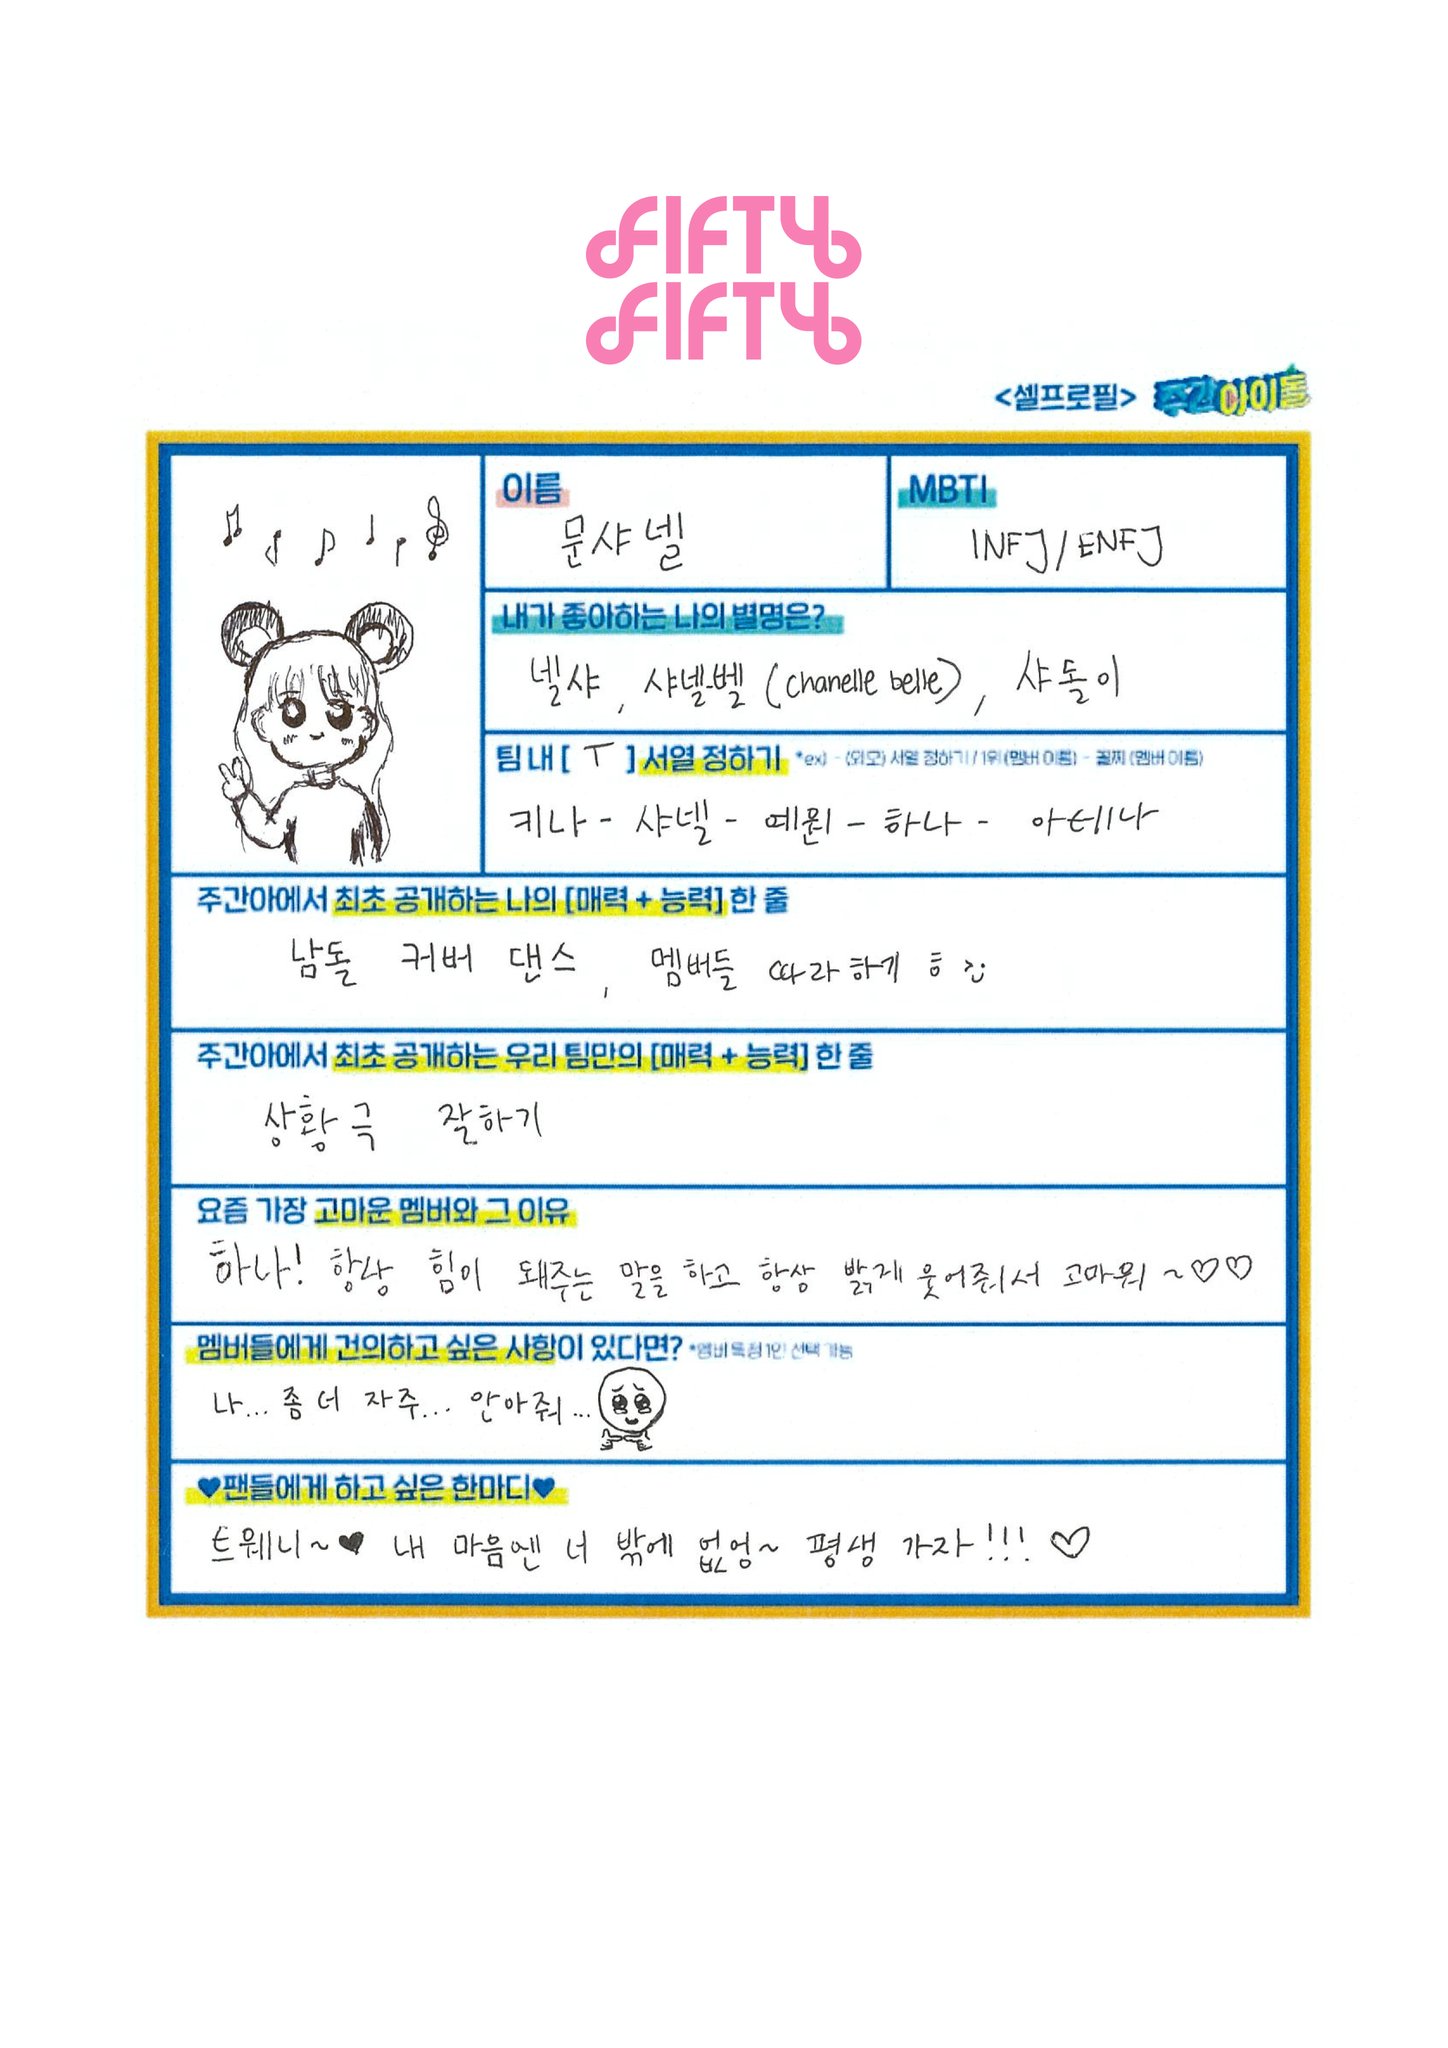 FIFTY
FIFTY
<셀프로필> 주간아이돌
이름
문샤넬
MBTI
INFJ/ENFJ
내가 좋아하는 나의 별명은?
넬샤, 샤넬벨 (chanelle belle), 샤돌이
팀 내 [ T ] 서열 정하기 *ex) - (외모) 서열 정하기 / 1위 (멤버 이름) - 꼴찌 (멤버 이름)
키나 - 샤넬 - 예원 - 하나 - 아테나
주간아에서 최초 공개하는 나의 [매력 + 능력] 한 줄
남돌 커버 댄스, 멤버들 따라하기 ㅎ
주간아에서 최초 공개하는 우리 팀만의 [매력 + 능력] 한 줄
상황극 잘하기
요즘 가장 고마운 멤버와 그 이유
하나! 항상 힘이 돼주는 말을 하고 항상 밝게 웃어줘서 고마워 ~♡♡
멤버들에게 건의하고 싶은 사항이 있다면? *멤버 특정 1인 선택 가능
나... 좀 더 자주... 안아줘...
♥팬들에게 하고 싶은 한마디♥
트웨니~♥ 내 마음엔 너 밖에 없엉~ 평생 가자!!! ♡